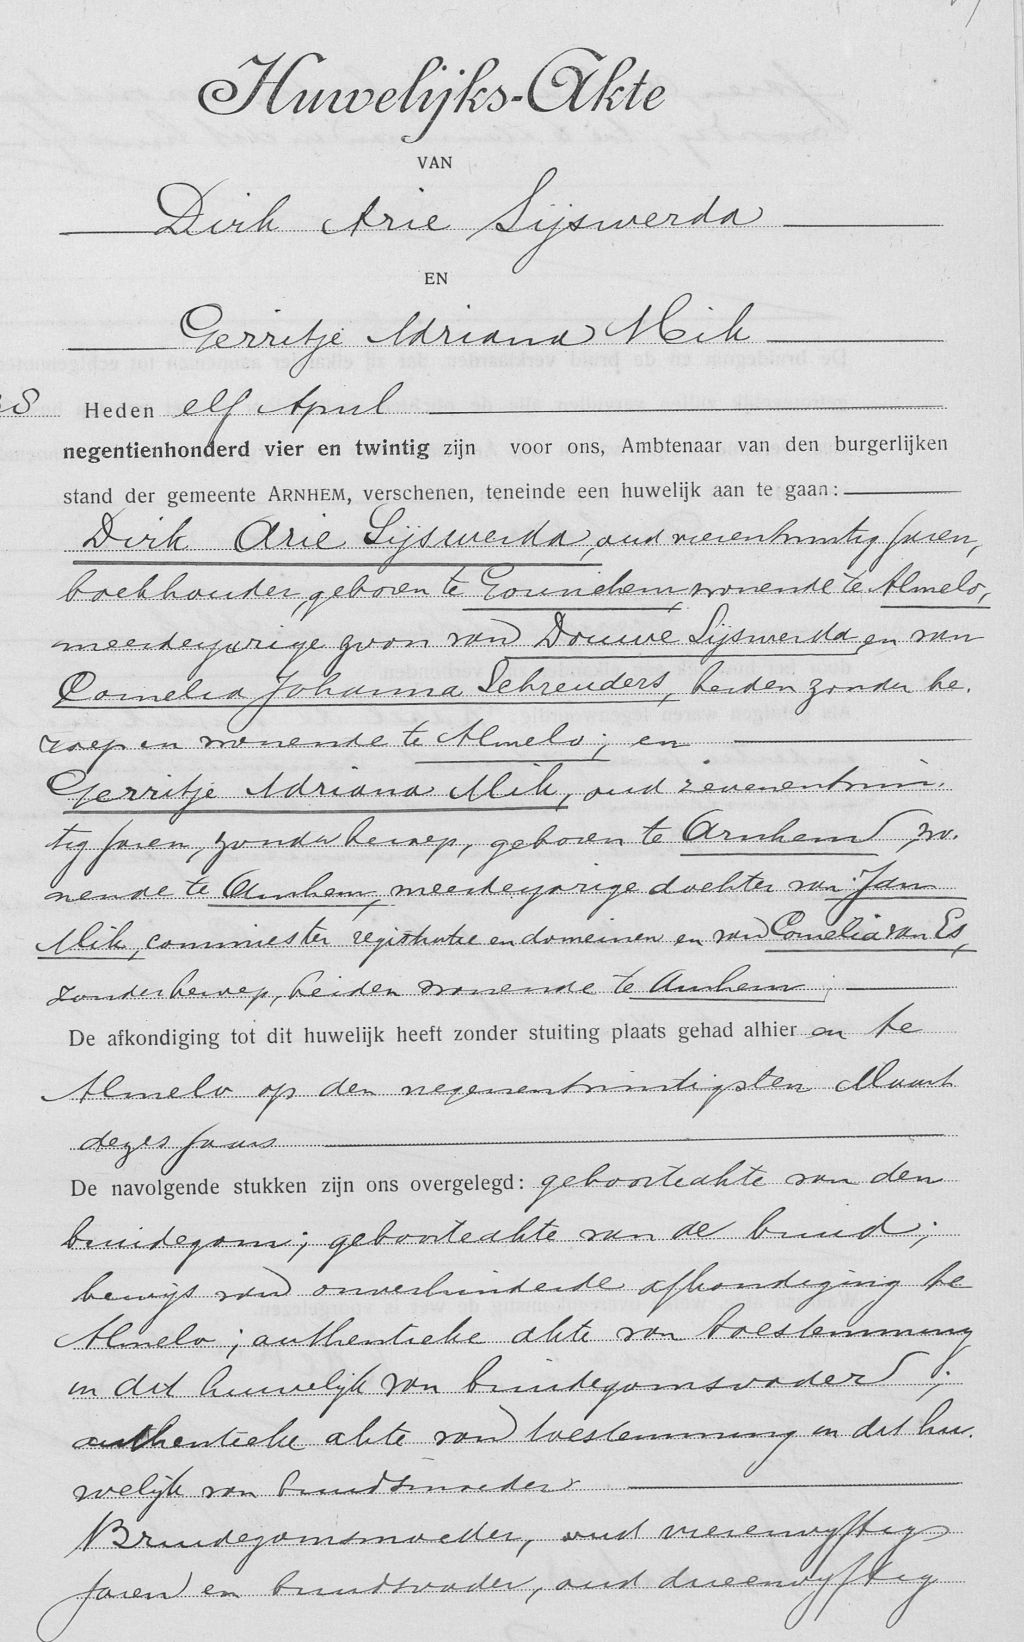 Huwelijks-Akte
VAN
Dirk Arie Sijswerda
EN
Gerritje Adriana Mik
Heden elf April
negentienhonderd vier en twintig zijn voor ons, Ambtenaar van den burgerlijken
stand der gemeente ARNHEM, verschenen, teneinde een huwelijk aan te gaan:
Dirk Arie Sijswerda, oud vierentwintig jaren,
boekhouder, geboren te Gorinchem, wonende te Almelo,
meerderjarige zoon van Douwe Sijswerda en van
Cornelia Johanna Schreuders, beiden zonder be-
roep en wonende te Almelo; en
Gerritje Adriana Mik, oud zevenentwin-
tig jaren, zonder beroep, geboren te Arnhem, wo-
nende te Arnhem, meerderjarige dochter van Jan
Mik, commies ter registratie en domeinen en van Cornelia van Es,
zonder beroep, beiden wonende te Arnhem;
De afkondiging tot dit huwelijk heeft zonder stuiting plaats gehad alhier en te
Almelo op den negenentwintigsten Maart
dezes jaars
De navolgende stukken zijn ons overgelegd: geboorteakte van den
bruidegom; geboorteakte van de bruid;
bewijs van onverhinderde afkondiging te
Almelo; authentieke akte van toestemming
in dit huwelijk van bruidegomsvader;
authentieke akte van toestemming in dit hu-
welijk van bruidsmoeder
Bruidegomsmoeder, oud vierenvijftig
jaren en bruidsvader, oud drieenvijftig